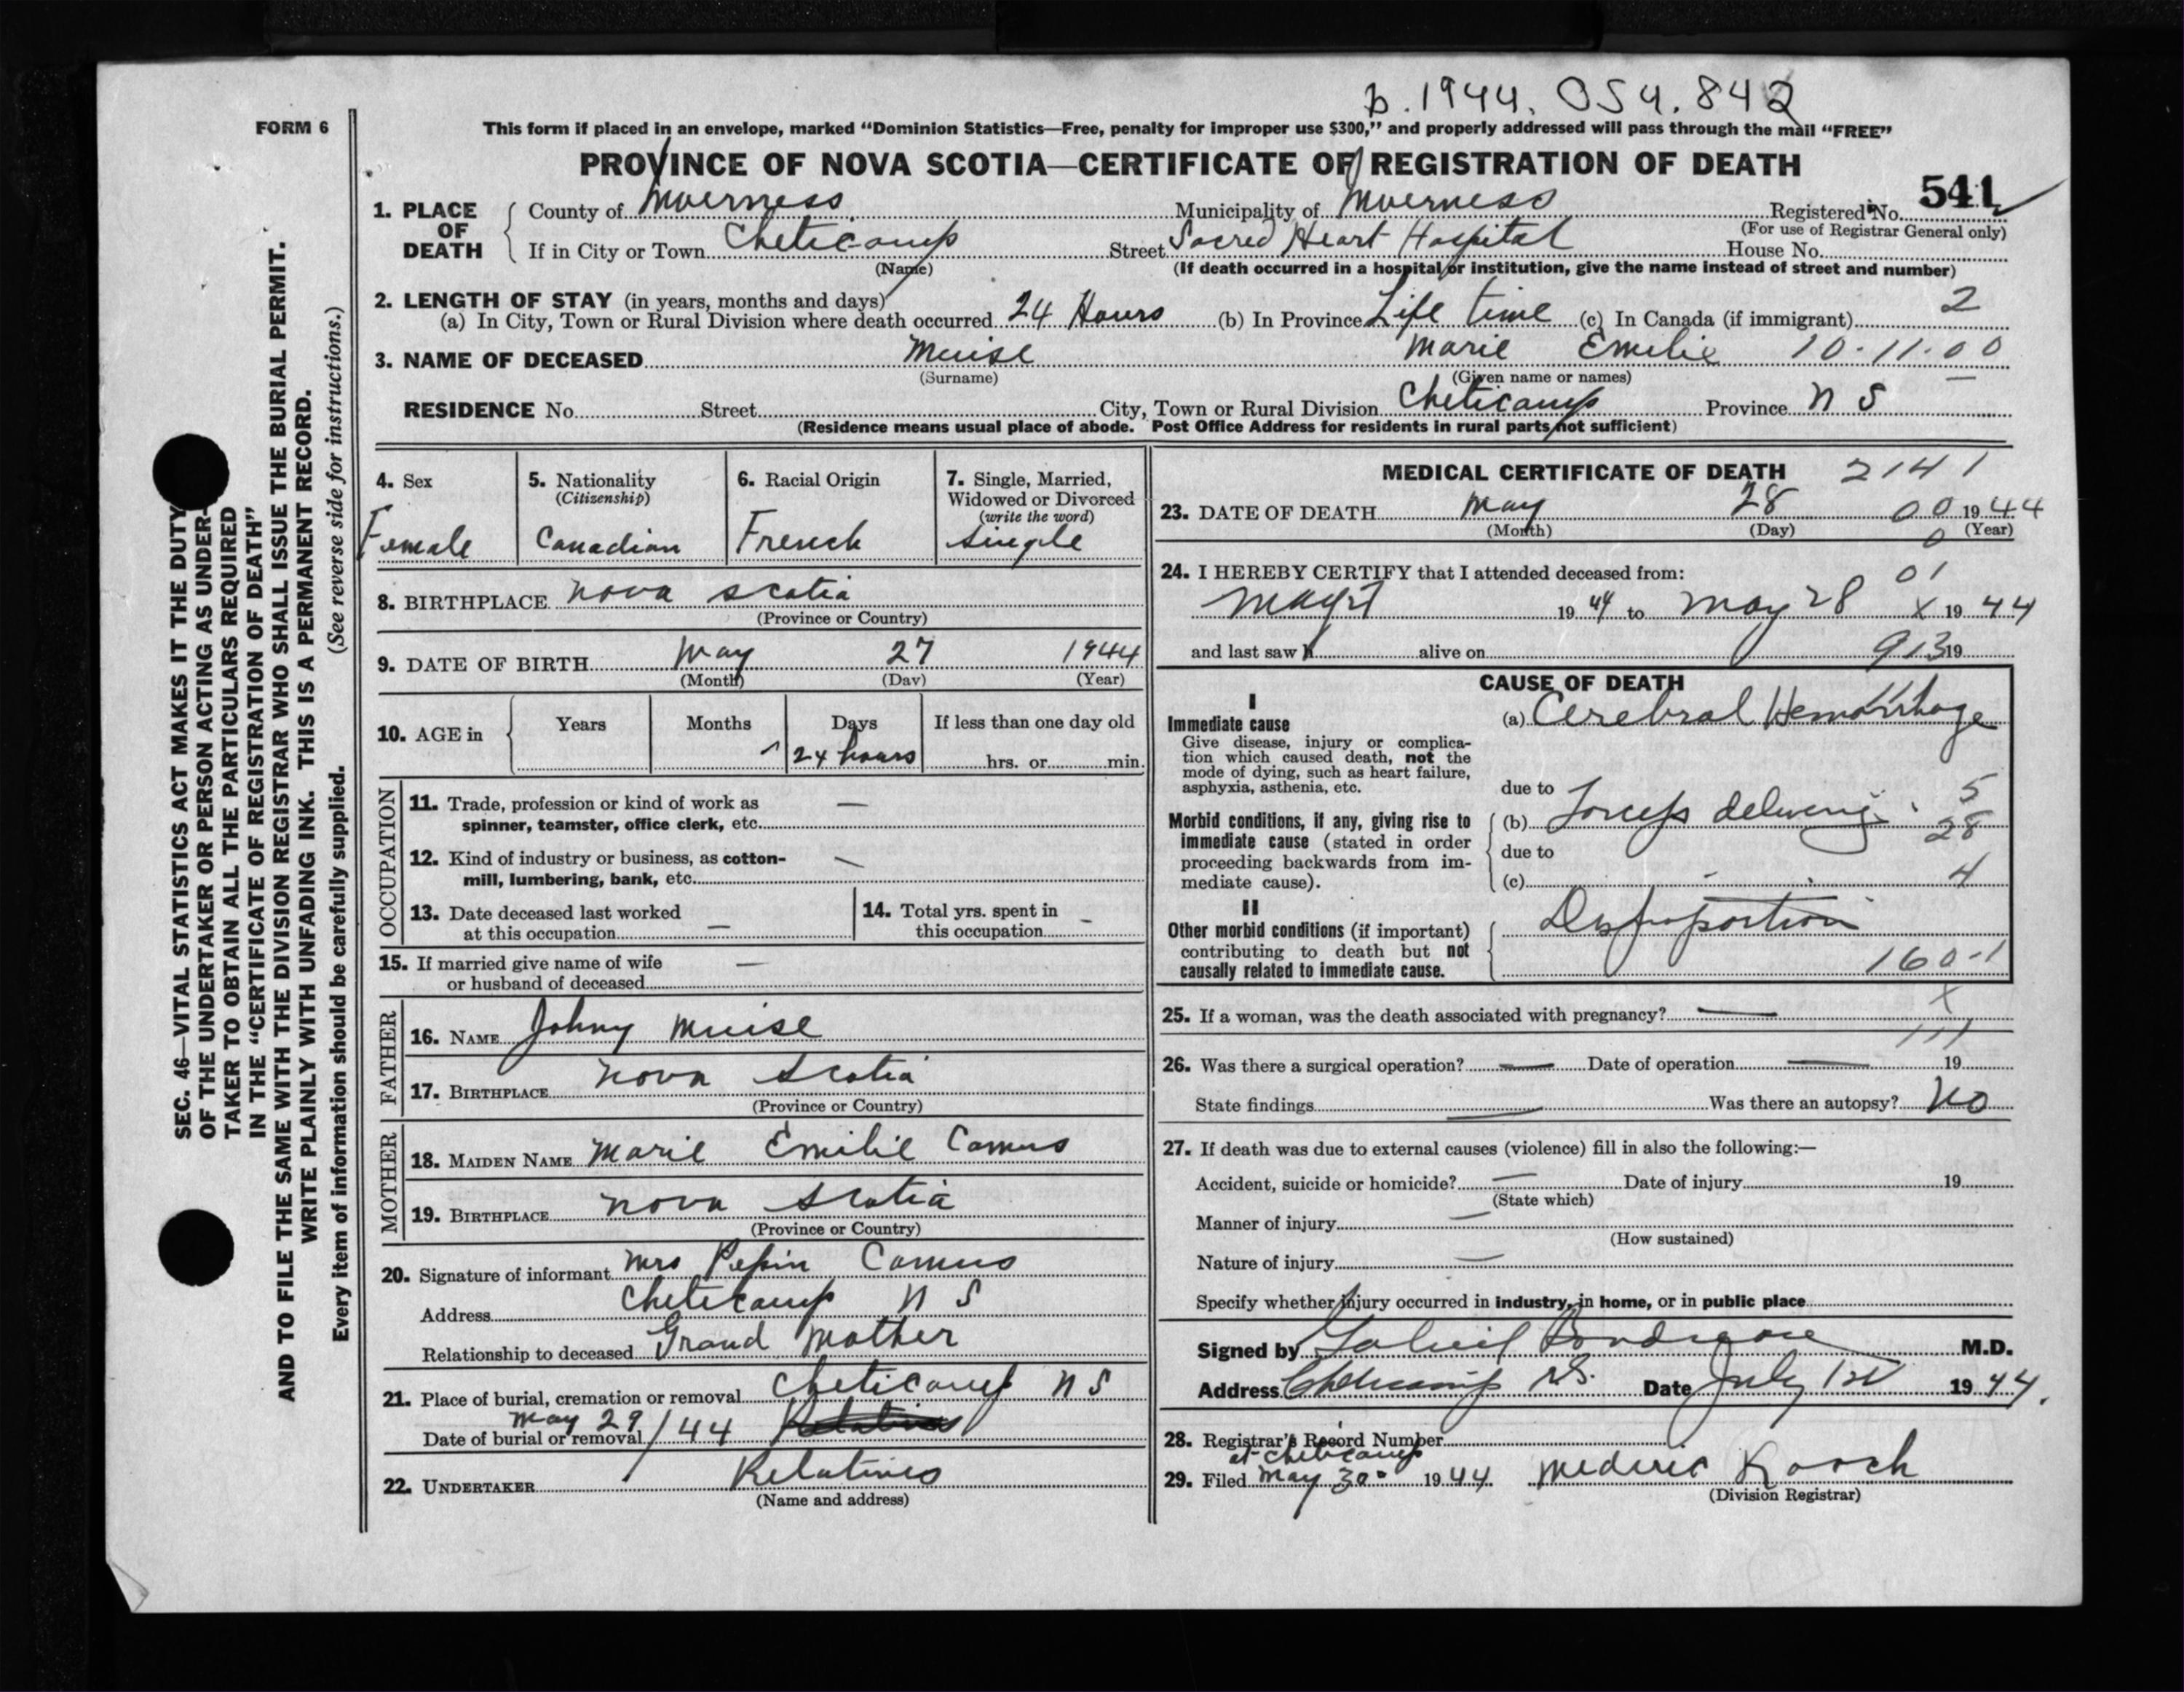 b. 1944. 054. 842
FORM 6
This form if placed in an envelope, marked "Dominion Statistics—Free, penalty for improper use $300," and properly addressed will pass through the mail "FREE"
PROVINCE OF NOVA SCOTIA—CERTIFICATE OF REGISTRATION OF DEATH
541
1. PLACE OF DEATH County of Inverness Municipality of Inverness Registered No.
(For use of Registrar General only)
If in City or Town Cheticamp Street Sacred Heart Hospital House No.
(Name) (If death occurred in a hospital or institution, give the name instead of street and number)
2. LENGTH OF STAY (in years, months and days)
(a) In City, Town or Rural Division where death occurred 24 Hours (b) In Province Life time (c) In Canada (if immigrant) 2
3. NAME OF DECEASED Muise Marie Emilie 10-11-00
(Surname) (Given name or names)
RESIDENCE No. Street City, Town or Rural Division Cheticamp Province N S
(Residence means usual place of abode. Post Office Address for residents in rural parts not sufficient)
SEC. 46—VITAL STATISTICS ACT MAKES IT THE DUTY
OF THE UNDERTAKER OR PERSON ACTING AS UNDER-
TAKER TO OBTAIN ALL THE PARTICULARS REQUIRED
IN THE "CERTIFICATE OF REGISTRATION OF DEATH"
AND TO FILE THE SAME WITH THE DIVISION REGISTRAR WHO SHALL ISSUE THE BURIAL PERMIT.
WRITE PLAINLY WITH UNFADING INK. THIS IS A PERMANENT RECORD.
Every item of information should be carefully supplied. (See reverse side for instructions.)
4. Sex
Female
5. Nationality
(Citizenship)
Canadian
6. Racial Origin
French
7. Single, Married,
Widowed or Divorced
(write the word)
Single
8. BIRTHPLACE Nova Scotia
(Province or Country)
9. DATE OF BIRTH May 27 1944
(Month) (Day) (Year)
10. AGE in Years Months Days If less than one day old
24 hours hrs. or min.
OCCUPATION
11. Trade, profession or kind of work as —
spinner, teamster, office clerk, etc.
12. Kind of industry or business, as cotton- —
mill, lumbering, bank, etc.
13. Date deceased last worked
at this occupation —
14. Total yrs. spent in
this occupation —
15. If married give name of wife —
or husband of deceased
FATHER
16. NAME Johny Muise
17. BIRTHPLACE Nova Scotia
(Province or Country)
MOTHER
18. MAIDEN NAME Marie Emilie Camus
19. BIRTHPLACE Nova Scotia
(Province or Country)
20. Signature of informant Mrs Pepin Camus
Address Cheticamp N S
Relationship to deceased Grand Mother
21. Place of burial, cremation or removal Cheticamp N S
Date of burial or removal May 29/44
22. UNDERTAKER Relatives
(Name and address)
MEDICAL CERTIFICATE OF DEATH 2141
23. DATE OF DEATH May 28 00 1944
(Month) (Day) 0 (Year)
24. I HEREBY CERTIFY that I attended deceased from: 01
May 27 1944 to May 28 x 1944
and last saw h alive on 913 19
CAUSE OF DEATH
I
Immediate cause (a) Cerebral Hemorrhage
Give disease, injury or complica-
tion which caused death, not the
mode of dying, such as heart failure,
asphyxia, asthenia, etc.
due to 5
Morbid conditions, if any, giving rise to
immediate cause (stated in order
proceeding backwards from im-
mediate cause).
(b) Forceps delivery. 28
due to
(c) 4
II
Other morbid conditions (if important)
contributing to death but not
causally related to immediate cause.
Disproportion
160-1
25. If a woman, was the death associated with pregnancy? — x
111
26. Was there a surgical operation? — Date of operation — 19
State findings — Was there an autopsy? No
27. If death was due to external causes (violence) fill in also the following:—
Accident, suicide or homicide? — Date of injury 19
(State which)
Manner of injury —
(How sustained)
Nature of injury —
Specify whether injury occurred in industry, in home, or in public place
Signed by Gabriel Boudreau M.D.
Address Cheticamp N.S. Date July 1st 1944.
28. Registrar's Record Number
at Cheticamp
29. Filed May 30 1944 Mederic Roach
(Division Registrar)